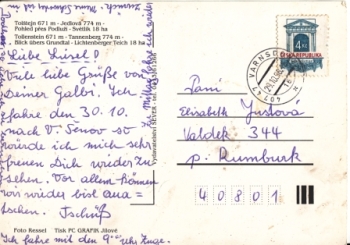 Tolštejn 671 m - Jedlová 774 m -
Pohled přes Podluží - Světlík 18 ha
Tollenstein 671 m - Tannenberg 774 m -
Blick übers Grundtal - Lichtenberger Teich 18 ha
Liebe Liesel!
Viele liebe Grüße von
Deiner Galbi. Ich
fahre den 30.10.
nach V. Šenov so
würde ich mich sehr
freuen Dich wieder zu
sehen. Vor allem können
wir wieder bissl qua=
tschen. Tschüß
Foto Kessel Tisk PC GRAFIK Jílové
Ich fahre mit den 9 Uhr Zuge.
VARNSDORF
407 47
ČESKÁ REPUBLIKA
4 Kč
Paní
Elisabeth Justová
Valdek 344
p. Rumburk
40801